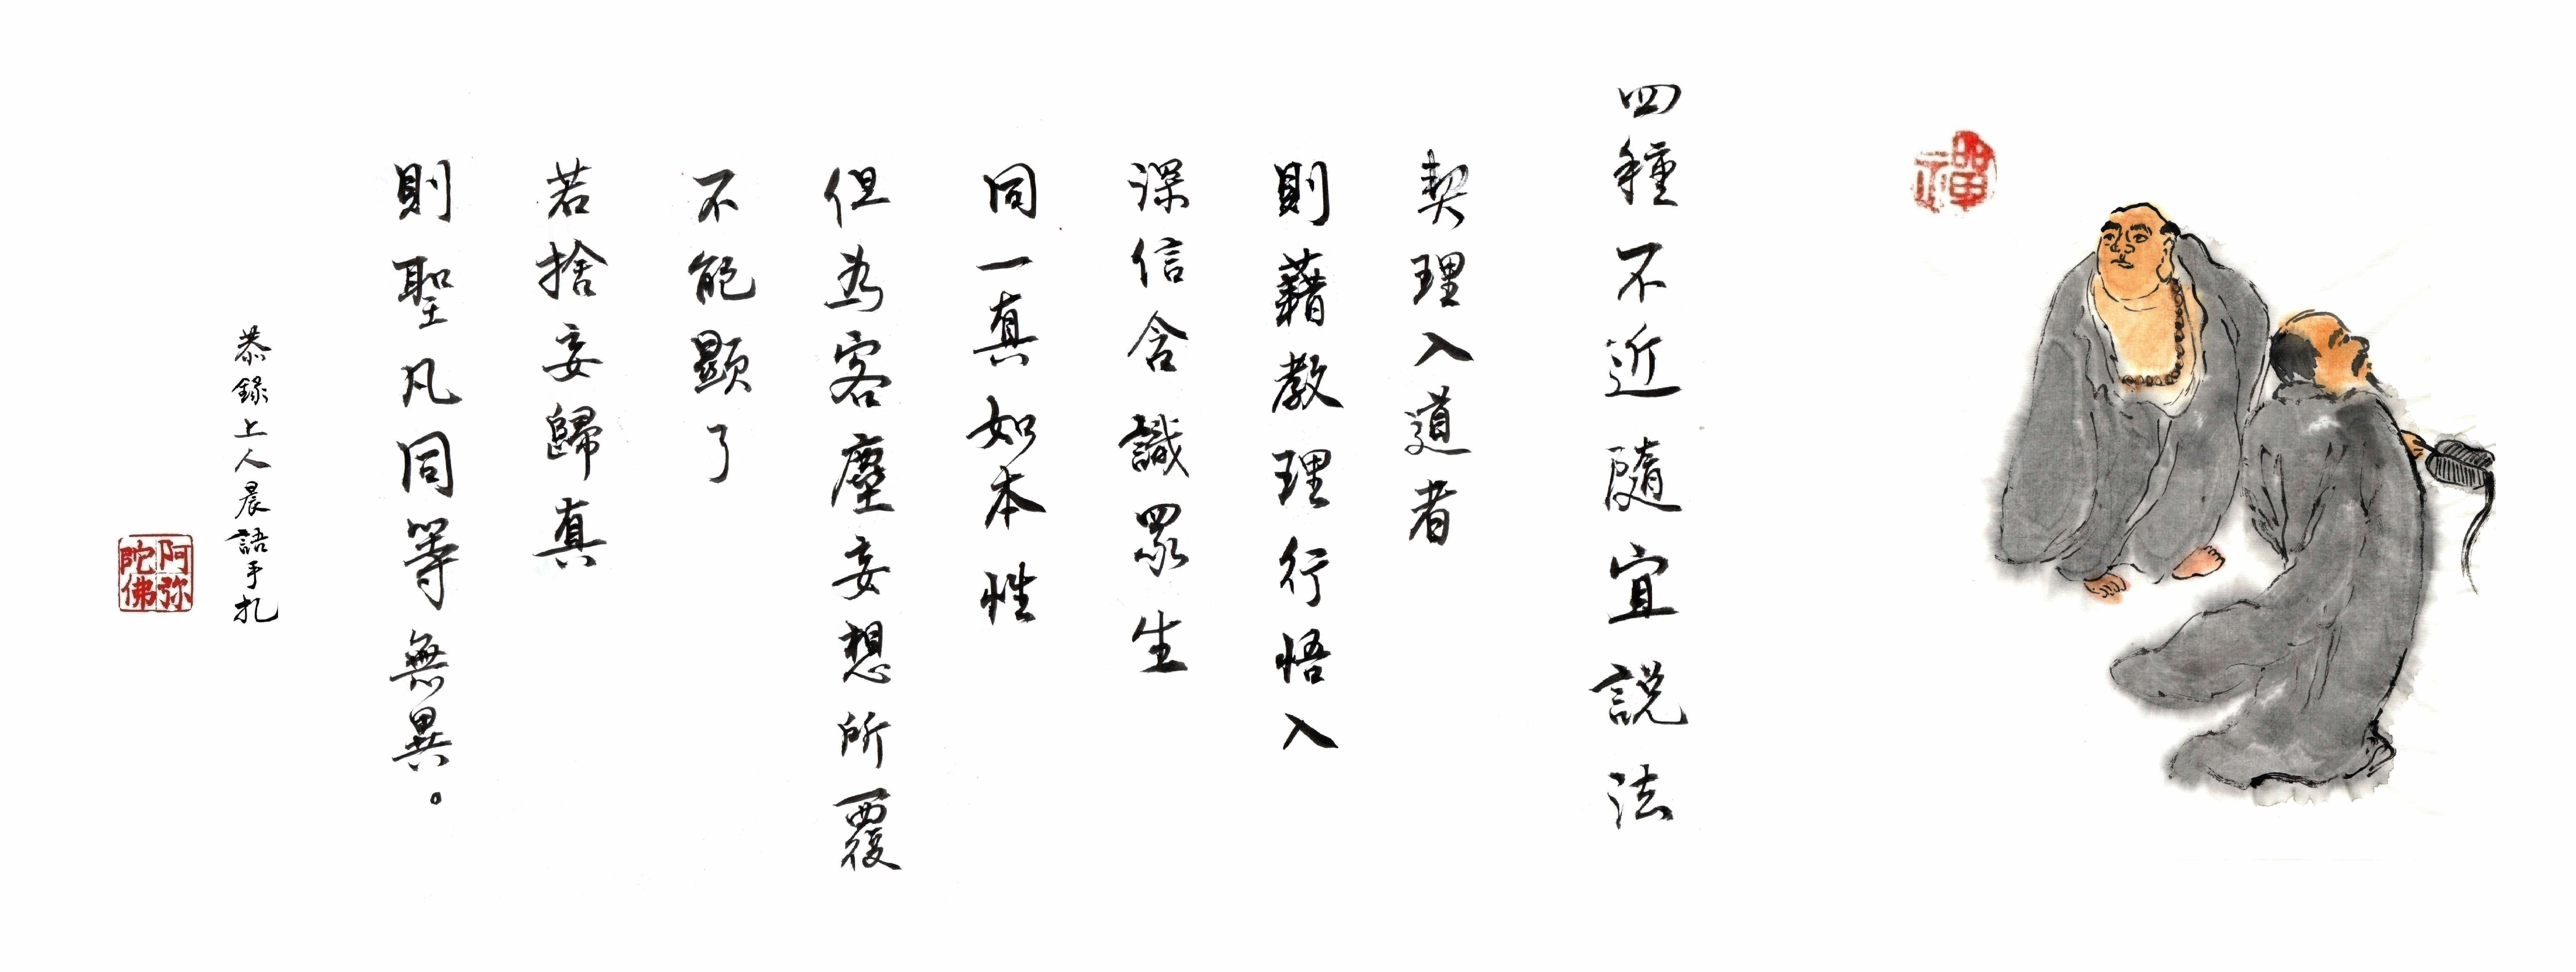 禪
四種不近隨宜説法
契理入道者
則藉教理行悟入
深信含識眾生
同一真如本性
但為客塵妄想所覆
不能顯了
若捨妄歸真
則聖凡同等無異。
恭錄上人晨語手扎
阿弥陀佛